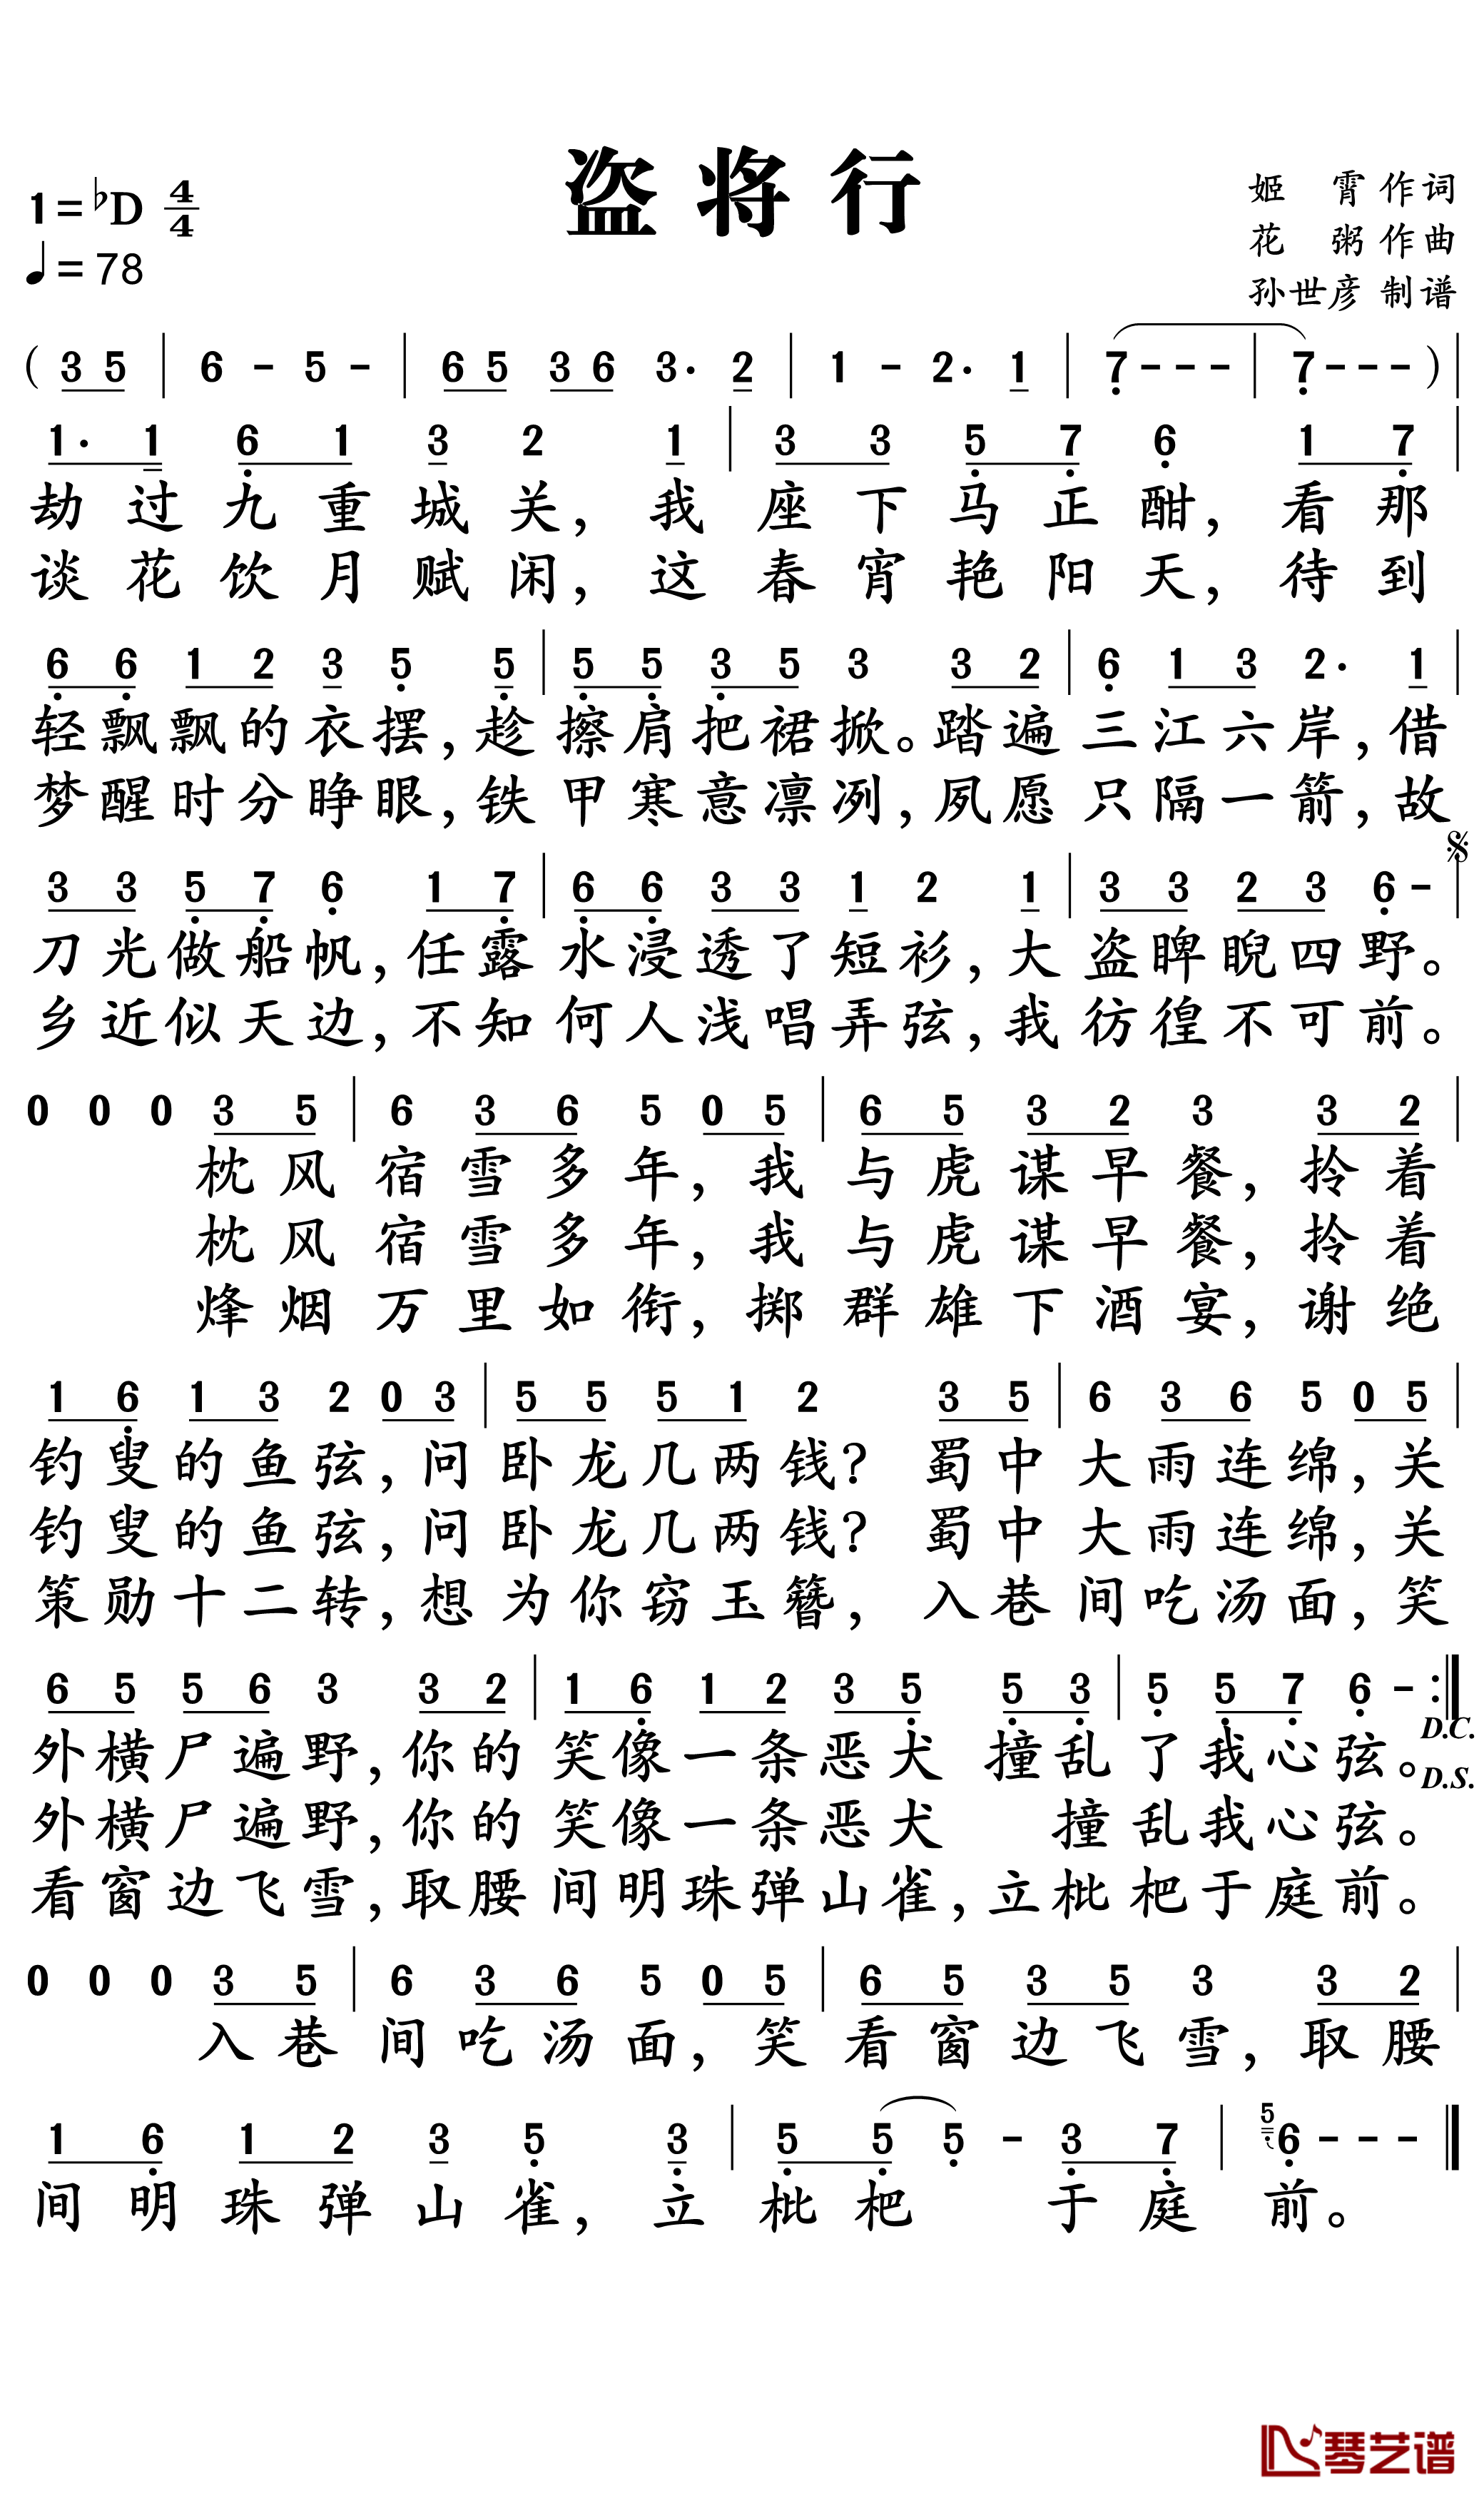 盗将行
1=♭D 4/4
♩=78
姬 霄 作词
花 粥 作曲
孙世彦 制谱
( 3 5 | 6 - 5 - | 6 5 3 6 3· 2 | 1 - 2· 1 | 7 - - - | 7 - - - ) |
1· 1 6 1 3 2 1 | 3 3 5 7 6 1 7 |
劫过九重城关，我座下马正酣，看那
谈花饮月赋闲，这春宵艳阳天，待到
6 6 1 2 3 5 5 | 5 5 3 5 3 3 2 | 6 1 3 2· 1 |
轻飘飘的衣摆，趁擦肩把裙掀。踏遍三江六岸，借
梦醒时分睁眼，铁甲寒意凛冽，夙愿只隔一箭，故
3 3 5 7 6 1 7 | 6 6 3 3 1 2 1 | 3 3 2 3 6 - |
刀光做船帆，任露水浸透了短衫，大盗睥睨四野。
乡近似天边，不知何人浅唱弄弦，我彷徨不可前。
0 0 0 3 5 | 6 3 6 5 0 5 | 6 5 3 2 3 3 2 |
枕风宿雪多年，我与虎谋早餐，拎着
枕风宿雪多年，我与虎谋早餐，拎着
烽烟万里如衔，掷群雄下酒宴，谢绝
1 6 1 3 2 0 3 | 5 5 5 1 2 3 5 | 6 3 6 5 0 5 |
钓叟的鱼弦，问卧龙几两钱？蜀中大雨连绵，关
钓叟的鱼弦，问卧龙几两钱？蜀中大雨连绵，关
策勋十二转，想为你窃玉簪，入巷间吃汤面，笑
6 5 5 6 3 3 2 | 1 6 1 2 3 5 5 3 | 5 5 7 6 - :|
外横尸遍野，你的笑像一条恶犬 撞乱了我心弦。 D.C.
D.S.
外横尸遍野，你的笑像一条恶犬 撞乱我心弦。
看窗边飞雪，取腰间明珠弹山雀，立枇杷于庭前。
0 0 0 3 5 | 6 3 6 5 0 5 | 6 5 3 5 3 3 2 |
入巷间吃汤面，笑看窗边飞雪，取腰
1 6 1 2 3 5 3 | 5 5 5 - 3 7 | 5 6 - - - ‖
间明珠弹山雀，立枇杷 于庭前。
琴艺谱